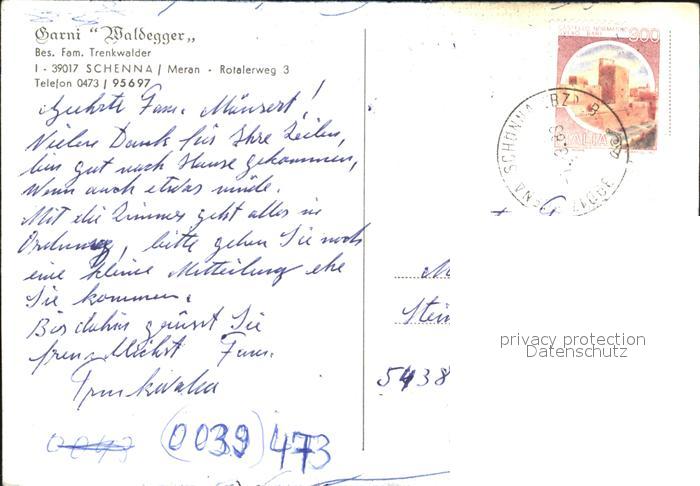 Garni "Waldegger„
Bes. Fam. Trenkwalder
I - 39017 SCHENNA / Meran - Rotalerweg 3
Telefon 0473 / 95697
Geehrte Fam. Mänsert!
Vielen Dank für Ihre Zeilen,
bin gut nach Hause gekommen,
Wenn auch etwas müde.
Mit die Zimmer geht alles in
Ordnung, bitte geben Sie noch
eine kleine Mitteilung ehe
Sie kommen.
Bis dahin grüsst Sie
freundlichst Fam.
Trenkwalder
(0039) 473
900
ITALIA
39017 SCHENNA SCHONNA (BZ) B
Stein
5438
privacy protection
Datenschutz